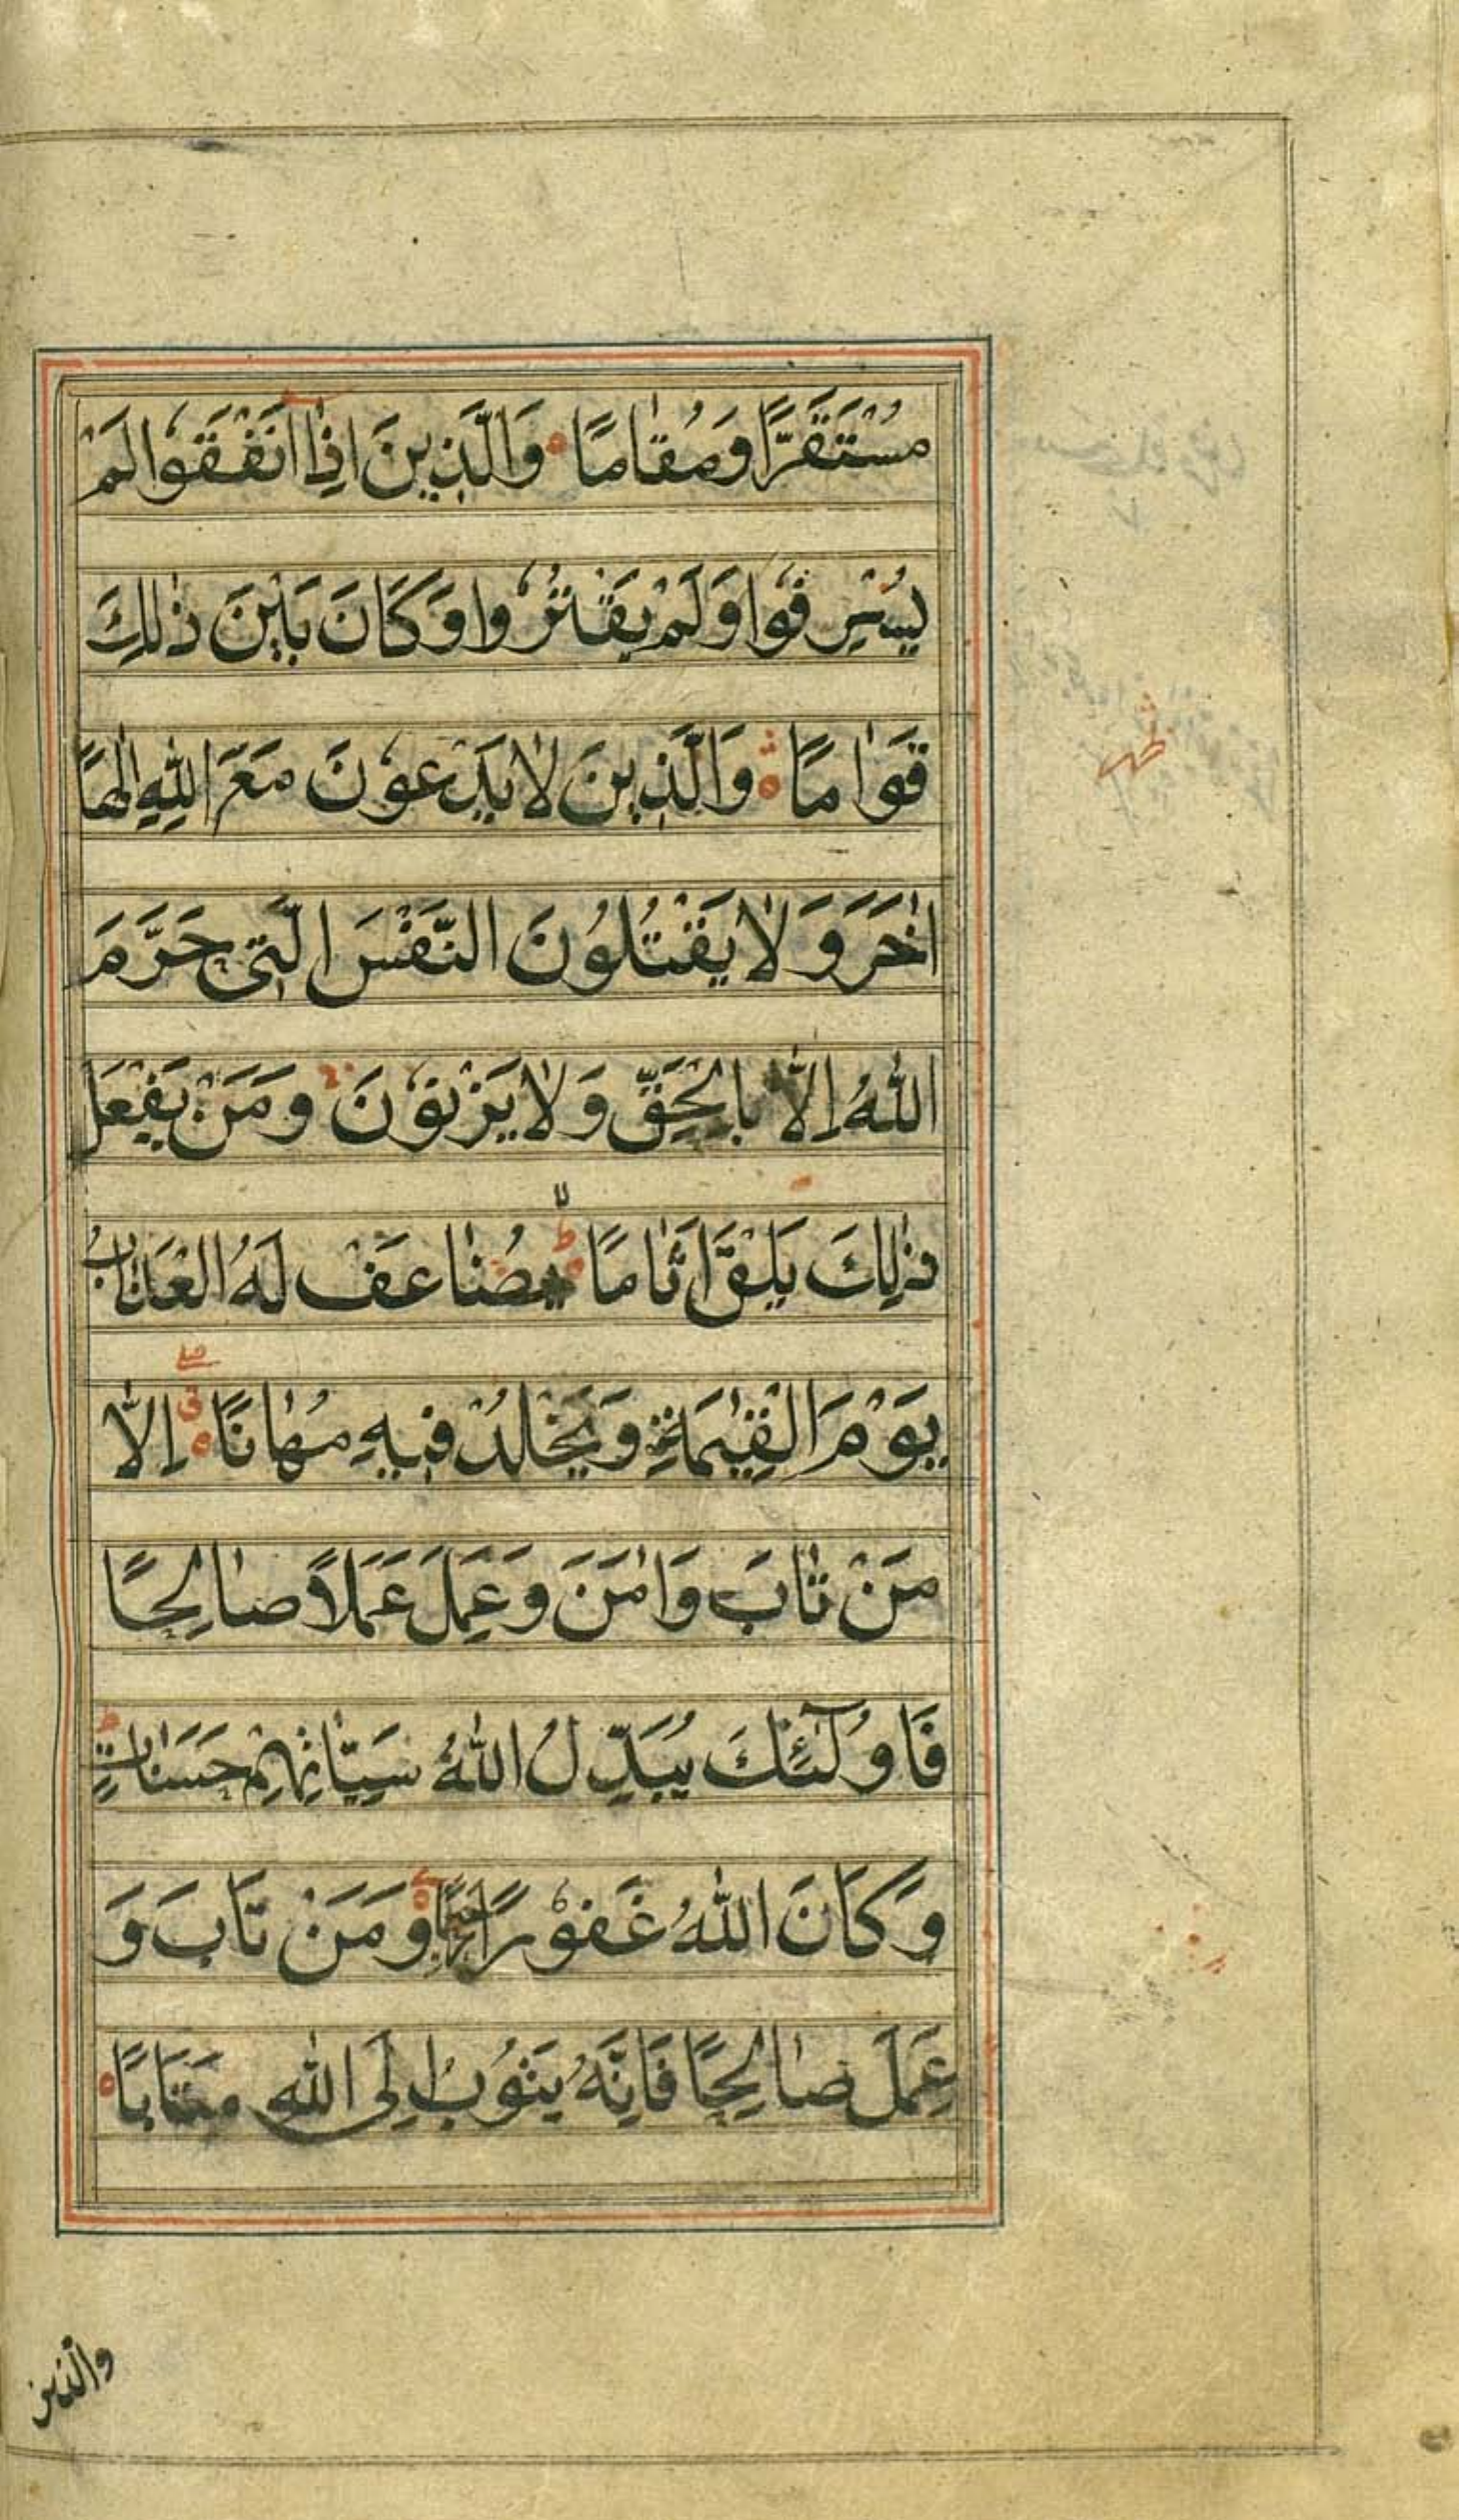 مُسْتَقَرًّا وَمُقَامًا وَالَّذِينَ اِذَا اَنْفَقُوا لَمْ
يُسْرِفُوا وَلَمْ يَقْتُرُوا وَكَانَ بَيْنَ ذٰلِكَ
قَوَامًا وَالَّذِينَ لَا يَدْعُونَ مَعَ اللّٰهِ اِلٰهًا
اٰخَرَ وَلَا يَقْتُلُونَ النَّفْسَ الَّتِي حَرَّمَ
اللّٰهُ اِلَّا بِالْحَقِّ وَلَا يَزْنُونَ وَمَنْ يَفْعَلْ
ذٰلِكَ يَلْقَ اَثَامًا يُضَاعَفْ لَهُ الْعَذَابُ
يَوْمَ الْقِيٰمَةِ وَيَخْلُدْ فِيهِ مُهَانًا اِلَّا
مَنْ تَابَ وَاٰمَنَ وَعَمِلَ عَمَلًا صَالِحًا
فَاُولٰٓئِكَ يُبَدِّلُ اللّٰهُ سَيِّاٰتِهِمْ حَسَنَاتٍ
وَكَانَ اللّٰهُ غَفُورًا رَحِيمًا وَمَنْ تَابَ وَ
عَمِلَ صَالِحًا فَاِنَّهُ يَتُوبُ اِلَى اللّٰهِ مَتَابًا
والذين